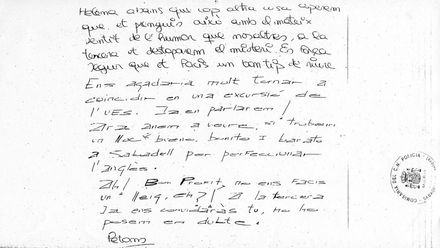 Helena abans que cap altra cosa esperem
que et prenguis això amb el mateix
sentit de l'humor que nosaltres, a la
tercera et destaparem el misteri. Es força
segur que et facis un bon tip de riure
Ens agradaria molt tornar a
coincidir en una excursió de
l'UES. Ja en parlarem!
Ara anem a veure, si trobem
un lloc bueno, bonito i barato
a Sabadell per perfeccionar
l'anglès.
Ah! Bon Profit, no ens facis
un lleig, eh?! A la tercera
Ja ens convidaràs tu, no ho
posem en dubte.
Petons